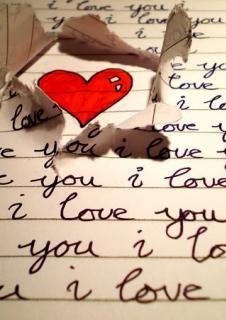 i love you i
love you i
you i
love
e you
love i love
love you i love
e you i love
e you i love
you i love
i love you
you i lo
u i love